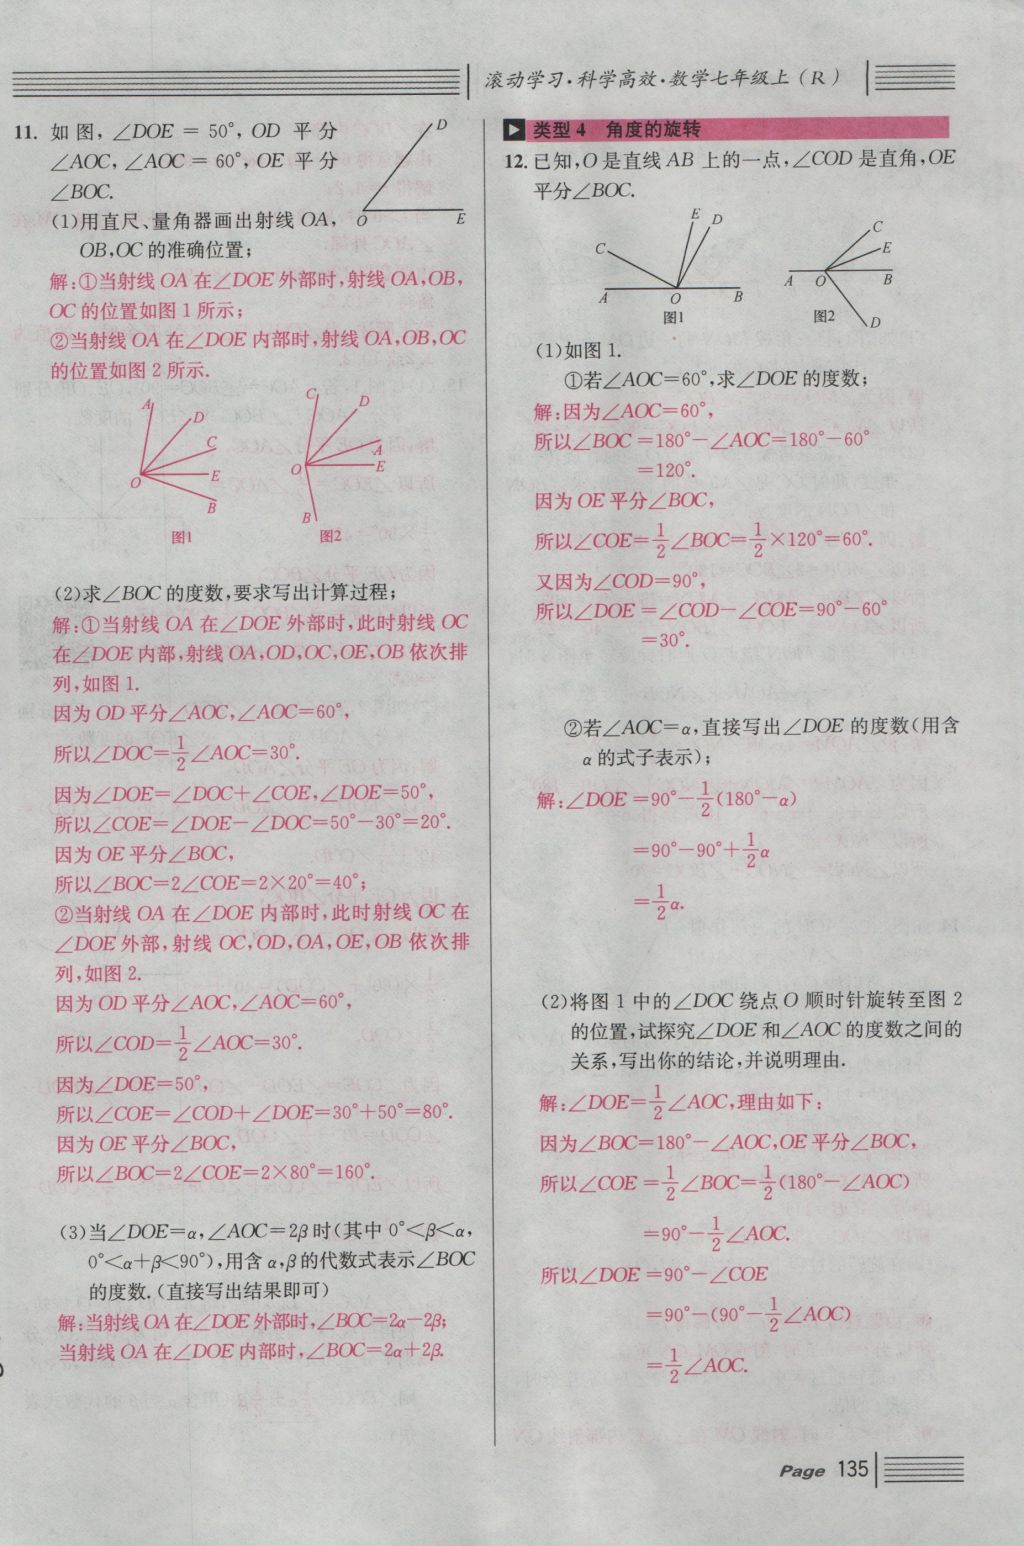 滚动学习·科学高效·数学七年级上(R)
11. 如图,∠DOE = 50°, OD 平分
∠AOC,∠AOC = 60°, OE 平分
∠BOC.
(1)用直尺、量角器画出射线 OA,
OB,OC 的准确位置;
D
O
E
解:①当射线 OA 在∠DOE 外部时,射线 OA,OB,
OC 的位置如图 1 所示;
②当射线 OA 在∠DOE 内部时,射线 OA,OB,OC
的位置如图 2 所示.
A
D
C
E
O
B
图1
C
D
A
E
O
B
图2
(2)求∠BOC 的度数,要求写出计算过程;
解:①当射线 OA 在∠DOE 外部时,此时射线 OC
在∠DOE 内部,射线 OA,OD,OC,OE,OB 依次排
列,如图 1.
因为 OD 平分∠AOC,∠AOC=60°,
所以∠DOC=1/2∠AOC=30°.
因为∠DOE=∠DOC+∠COE,∠DOE=50°,
所以∠COE=∠DOE-∠DOC=50°-30°=20°.
因为 OE 平分∠BOC,
所以∠BOC=2∠COE=2×20°=40°;
②当射线 OA 在∠DOE 内部时,此时射线 OC 在
∠DOE 外部,射线 OC,OD,OA,OE,OB 依次排
列,如图 2.
因为 OD 平分∠AOC,∠AOC=60°,
所以∠COD=1/2∠AOC=30°.
因为∠DOE=50°,
所以∠COE=∠COD+∠DOE=30°+50°=80°.
因为 OE 平分∠BOC,
所以∠BOC=2∠COE=2×80°=160°.
(3)当∠DOE=α,∠AOC=2β 时(其中 0°<β<α,
0°<α+β<90°),用含 α,β 的代数式表示∠BOC
的度数.(直接写出结果即可)
解:当射线 OA 在∠DOE 外部时,∠BOC=2α-2β;
当射线 OA 在∠DOE 内部时,∠BOC=2α+2β.
类型 4 角度的旋转
12. 已知,O 是直线 AB 上的一点,∠COD 是直角,OE
平分∠BOC.
E
D
C
A
O
B
图1
C
E
A
O
B
D
图2
(1)如图 1.
①若∠AOC=60°,求∠DOE 的度数;
解:因为∠AOC=60°,
所以∠BOC =180°-∠AOC=180°-60°
=120°.
因为 OE 平分∠BOC,
所以∠COE=1/2∠BOC=1/2×120°=60°.
又因为∠COD=90°,
所以∠DOE =∠COD-∠COE=90°-60°
=30°.
②若∠AOC=α,直接写出∠DOE 的度数(用含
α 的式子表示);
解:∠DOE =90°-1/2(180°-α)
=90°-90°+1/2α
=1/2α.
(2)将图 1 中的∠DOC 绕点 O 顺时针旋转至图 2
的位置,试探究∠DOE 和∠AOC 的度数之间的
关系,写出你的结论,并说明理由.
解:∠DOE=1/2∠AOC,理由如下:
因为∠BOC=180°-∠AOC,OE 平分∠BOC,
所以∠COE =1/2∠BOC=1/2(180°-∠AOC)
=90°-1/2∠AOC.
所以∠DOE =90°-∠COE
=90°-(90°-1/2∠AOC)
=1/2∠AOC.
Page 135